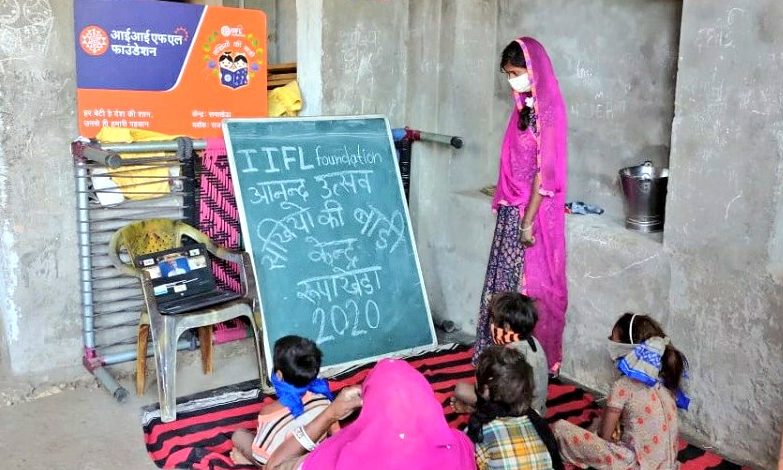 आईआईएफएल
फाउंडेशन
हर बेटी है देश की शान,
उनसे ही हमारी पहचान
केन्द्र:
IIFL foundation
आनन्द उत्सव
सखियों की बाड़ी
केन्द्र
रूपाखेड़ा
2020